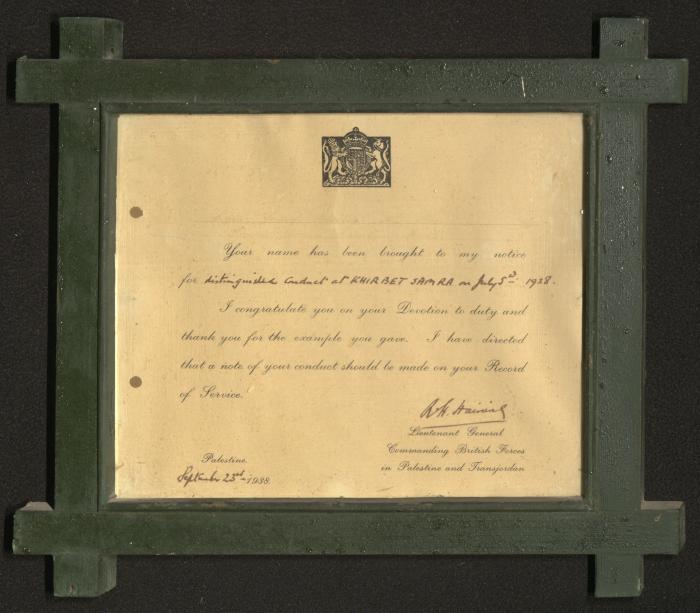 Your name has been brought to my notice
for distinguished conduct at KHIRBET SAMRA on July 5th 1938.
I congratulate you on your Devotion to duty and
thank you for the example you gave. I have directed
that a note of your conduct should be made on your Record
of Service.
Lieutenant General
Commanding British Forces
in Palestine and Transjordan
Palestine.
September 23rd 1938.